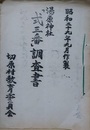 昭和三十九年九月作製
湯原神社
式三番調査書
切原村教育委員会